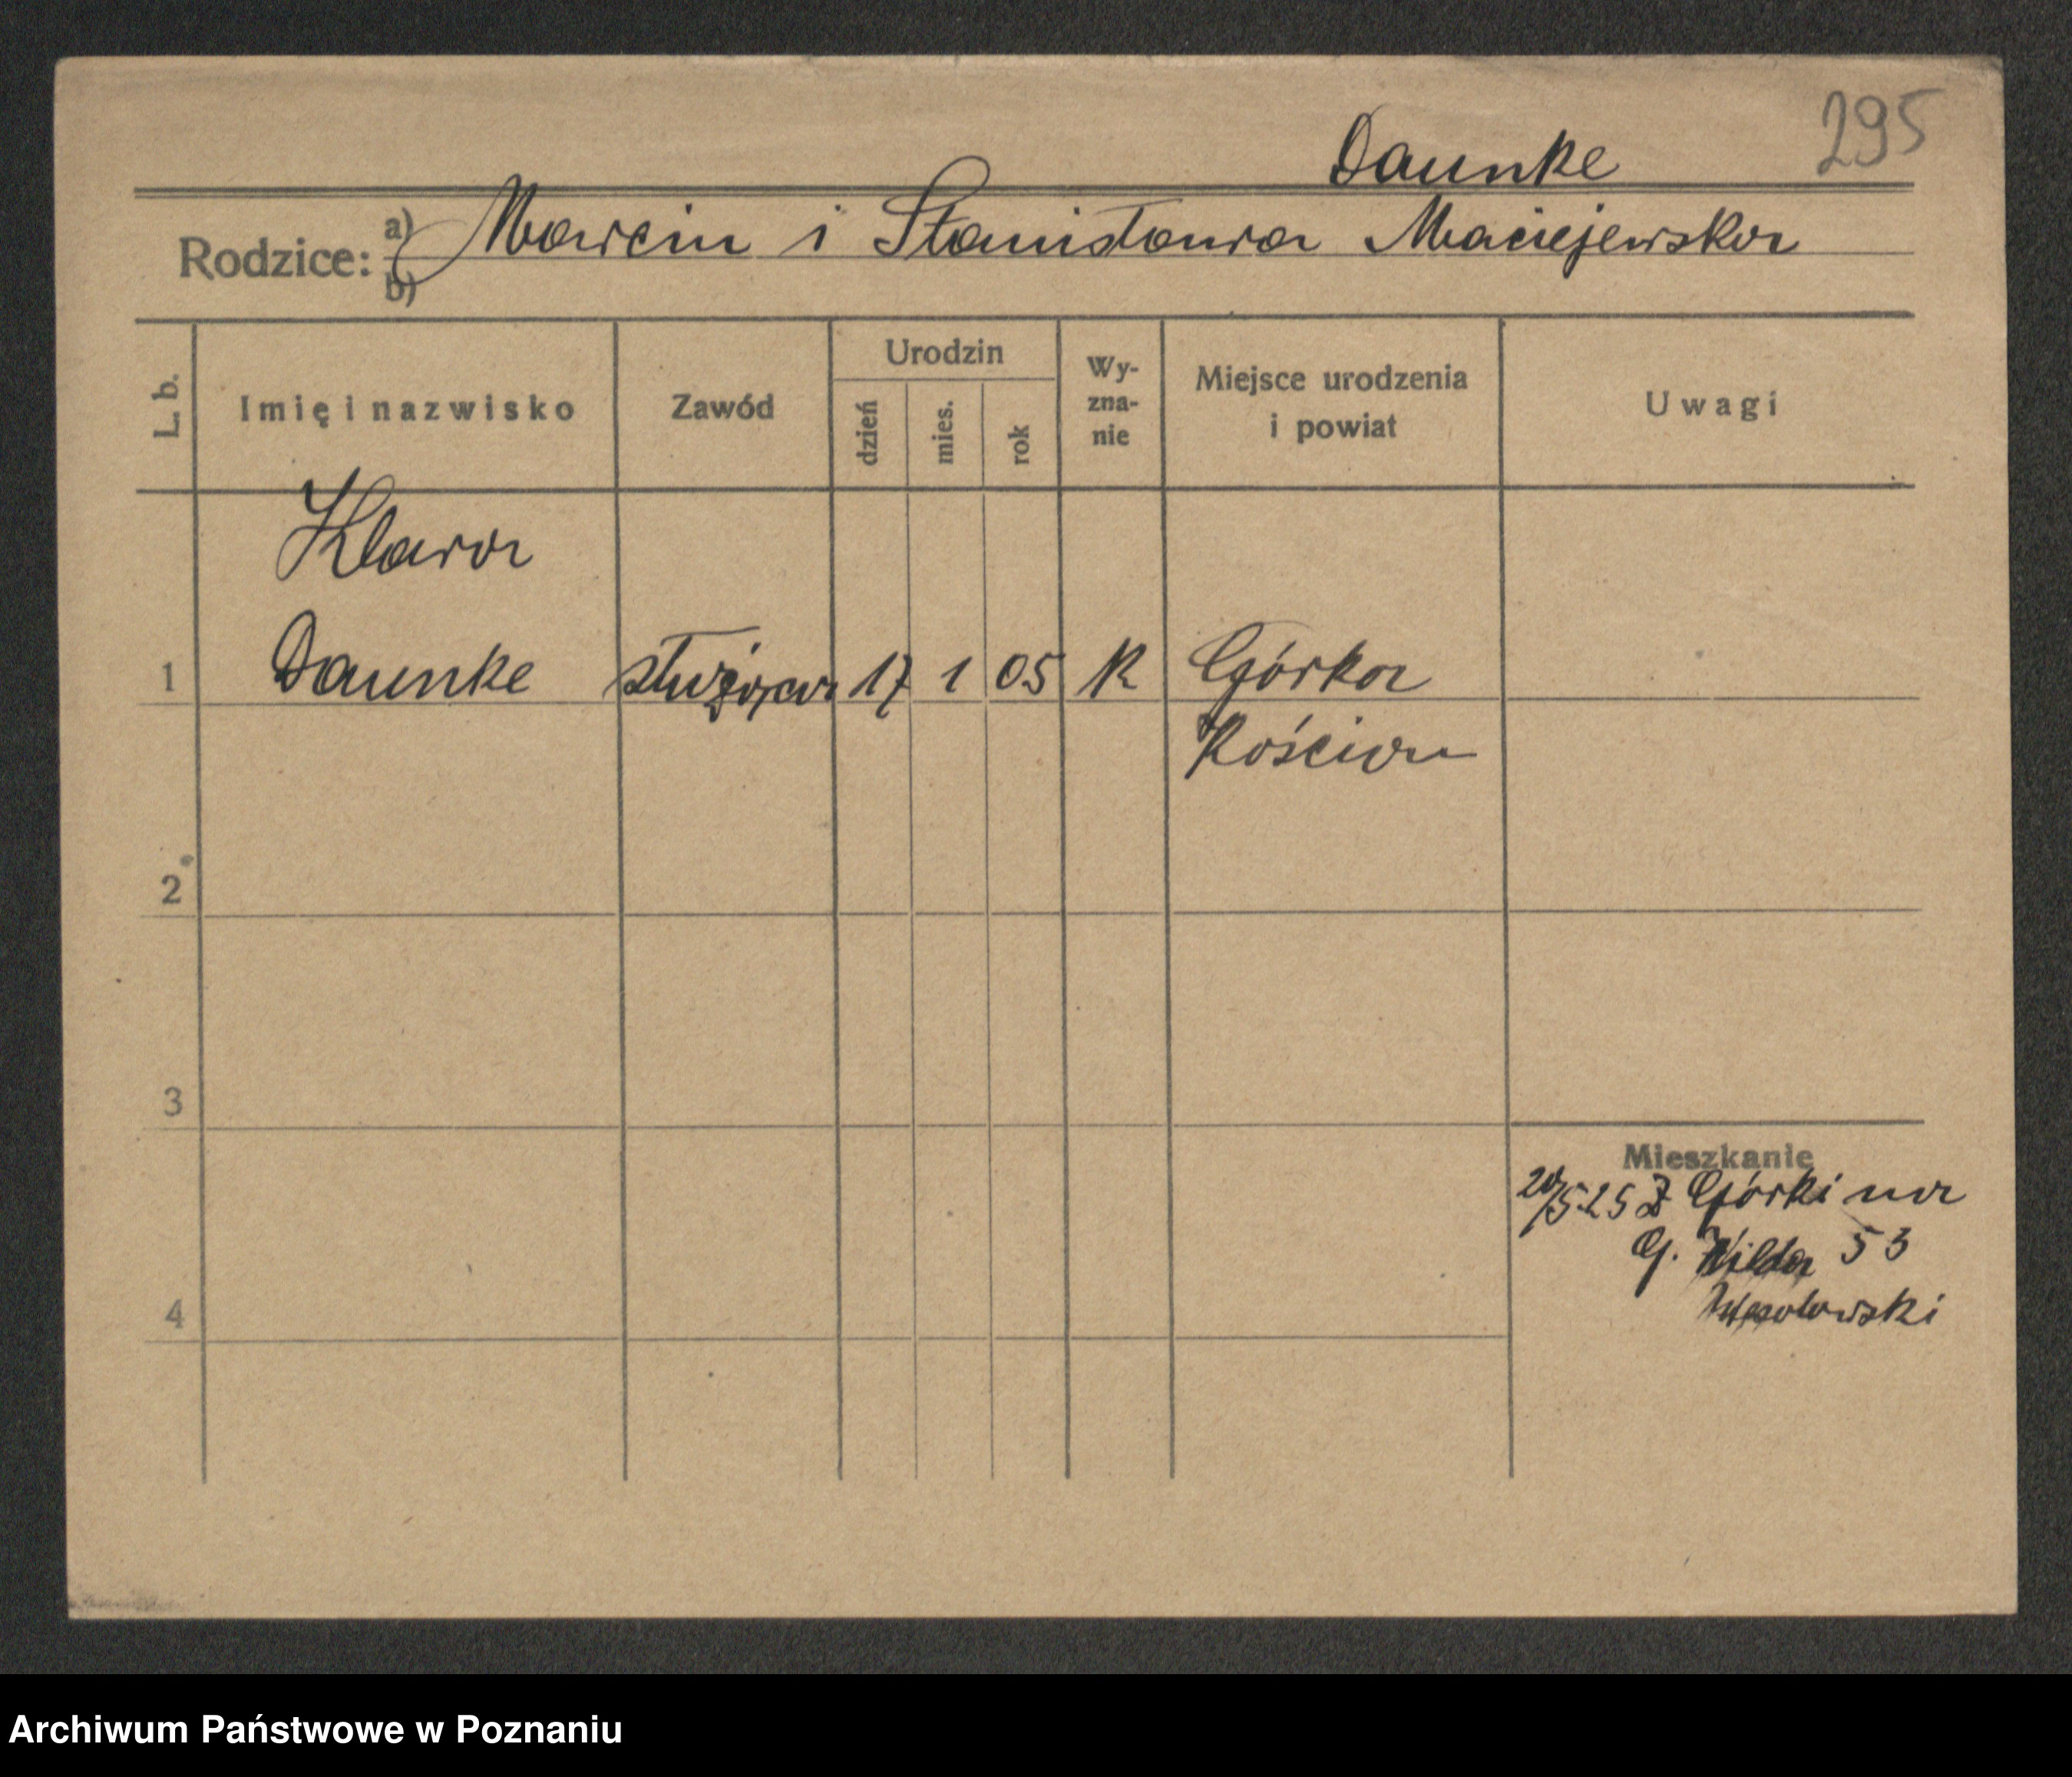 295
Daunke
Rodzice: a) Marcin i Stanisława Maciejewska
b)
L. b.
Imię i nazwisko
Zawód
Urodzin
dzień
mies.
rok
Wy-
zna-
nie
Miejsce urodzenia
i powiat
Uwagi
Klara
1 Daunke służąca 17 1 05 K Górka
Kościan
2
3
Mieszkanie
20/5 25 Z Górki na
G. Wilda 53
4
Wesołowski
Archiwum Państwowe w Poznaniu